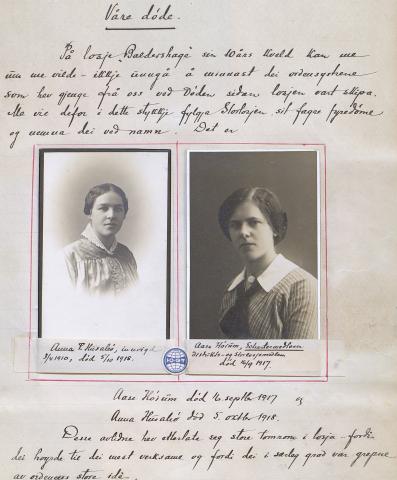 Våre døde.
På losje "Baldershagé" sin 10 års kveld kan me
um me vild ikkje unngå å minnast dei ordensystrene
som hev gjenge frå oss ved døden sidan losjen vart skipa.
Me vil defor i dette stykkje fylgja Storlosjen sit fagre fyredøme
og nemna dei ved namn. Det er
Anna Husabø, innvigd
3/4 1910, død 5/10 1918.
Aase Hørüm,
Distrikts- og Storlosjemedlem
død 16/9 1917.
Aase Hørüm død 16 septbr 1917 og
Anna Husabø død 5. oktbr 1918.
Desse avlidne hev etterlate seg store tomrom i losja fordi
dei høyrde til dei mest verksame og fordi dei i særleg grad var gripne
av ordenens store idé.